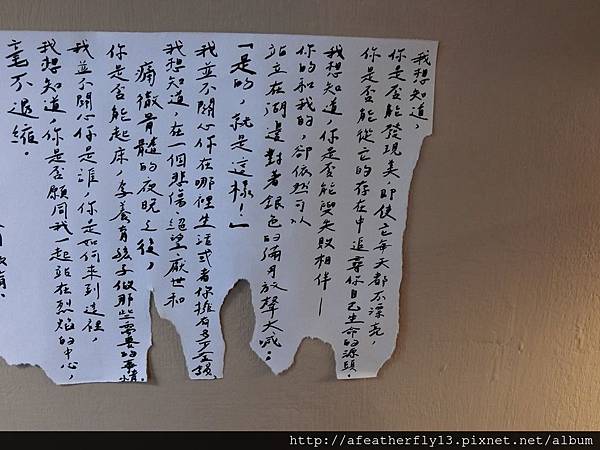 我想知道,
你是否能發現美,即使它每天都不漂亮,
你是否能從它的存在中追尋你自己生命的源頭。
我想知道,你是否能與失敗相伴—
你的和我的,卻依然可以
站立在湖邊對著銀色的滿月放聲大喊:
「是的,就是這樣!」
我並不關心你在哪裡生活或者你擁有多少金錢
我想知道,在一個悲傷、絕望、厭世和
痛徹骨髓的夜晚之後,
你是否能起床,去養育孩子做那些需要的事情。
我並不關心你是誰,你是如何來到這裡,
我想知道,你是否願同我一起站在烈焰的中心,
毫不退縮。
http://afeatherfly13.pixnet.net/album